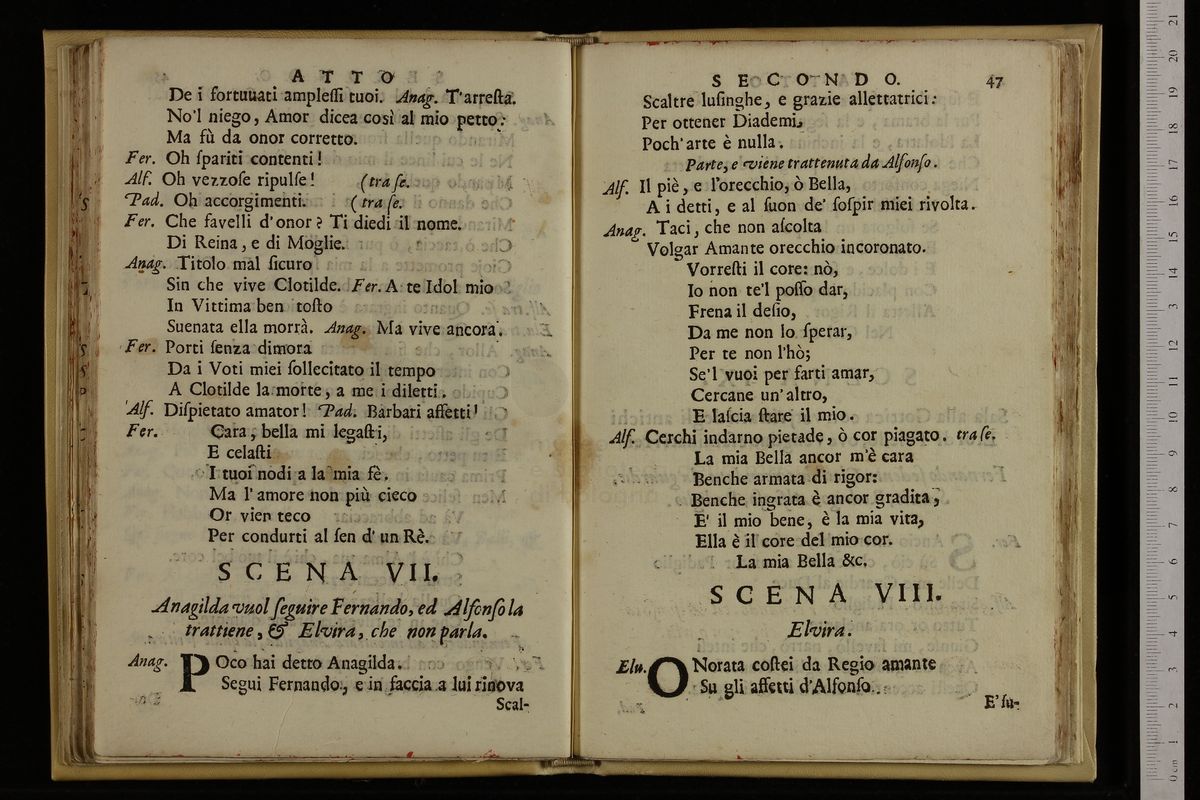 ATTO
De i fortuuati ampleſſi tuoi. Anag. T'arreſta.
No'l niego, Amor dicea così al mio petto:
Ma fù da onor corretto.
Fer. Oh ſpariti contenti!
Alf. Oh vezzoſe ripulſe! (tra ſe.
Pad. Oh accorgimenti. (tra ſe.
Fer. Che favelli d'onor? Ti diedi il nome.
Di Reina, e di Moglie.
Anag. Titolo mal ſicuro
Sin che vive Clotilde. Fer. A te Idol mio
In Vittima ben toſto
Suenata ella morrà. Anag. Ma vive ancora.
Fer. Porti ſenza dimora
Da i Voti miei ſollecitato il tempo
A Clotilde la morte, a me i diletti.
Alf. Diſpietato amator! Pad. Barbari affetti!
Fer. Cara, bella mi legaſti,
E celaſti
I tuoi nodi a la mia fè.
Ma l'amore non più cieco
Or vien teco
Per condurti al ſen d'un Rè.
SCENA VII.
Anagilda vuol ſeguire Fernando, ed Alfonſo la
trattiene, & Elvira, che non parla.
Anag. POco hai detto Anagilda.
Segui Fernando, e in faccia a lui rinova
Scal-
SECONDO. 47
Scaltre luſinghe, e grazie allettatrici:
Per ottener Diademi,
Poch'arte è nulla.
Parte, e viene trattenuta da Alfonſo.
Alf. Il piè, e l'orecchio, ò Bella,
A i detti, e al ſuon de' ſoſpir miei rivolta.
Anag. Taci, che non aſcolta
Volgar Amante orecchio incoronato.
Vorreſti il core: nò,
Io non te'l poſſo dar,
Frena il deſio,
Da me non lo ſperar,
Per te non l'hò;
Se'l vuoi per farti amar,
Cercane un'altro,
E laſcia ſtare il mio.
Alf. Cerchi indarno pietade, ò cor piagato. tra ſe.
La mia Bella ancor m'è cara
Benche armata di rigor:
Benche ingrata è ancor gradita,
E' il mio bene, è la mia vita,
Ella è il core del mio cor.
La mia Bella &c.
SCENA VIII.
Elvira.
Elu. ONorata coſtei da Regio amante
Su gli affetti d'Alfonſo..
E'ſu-